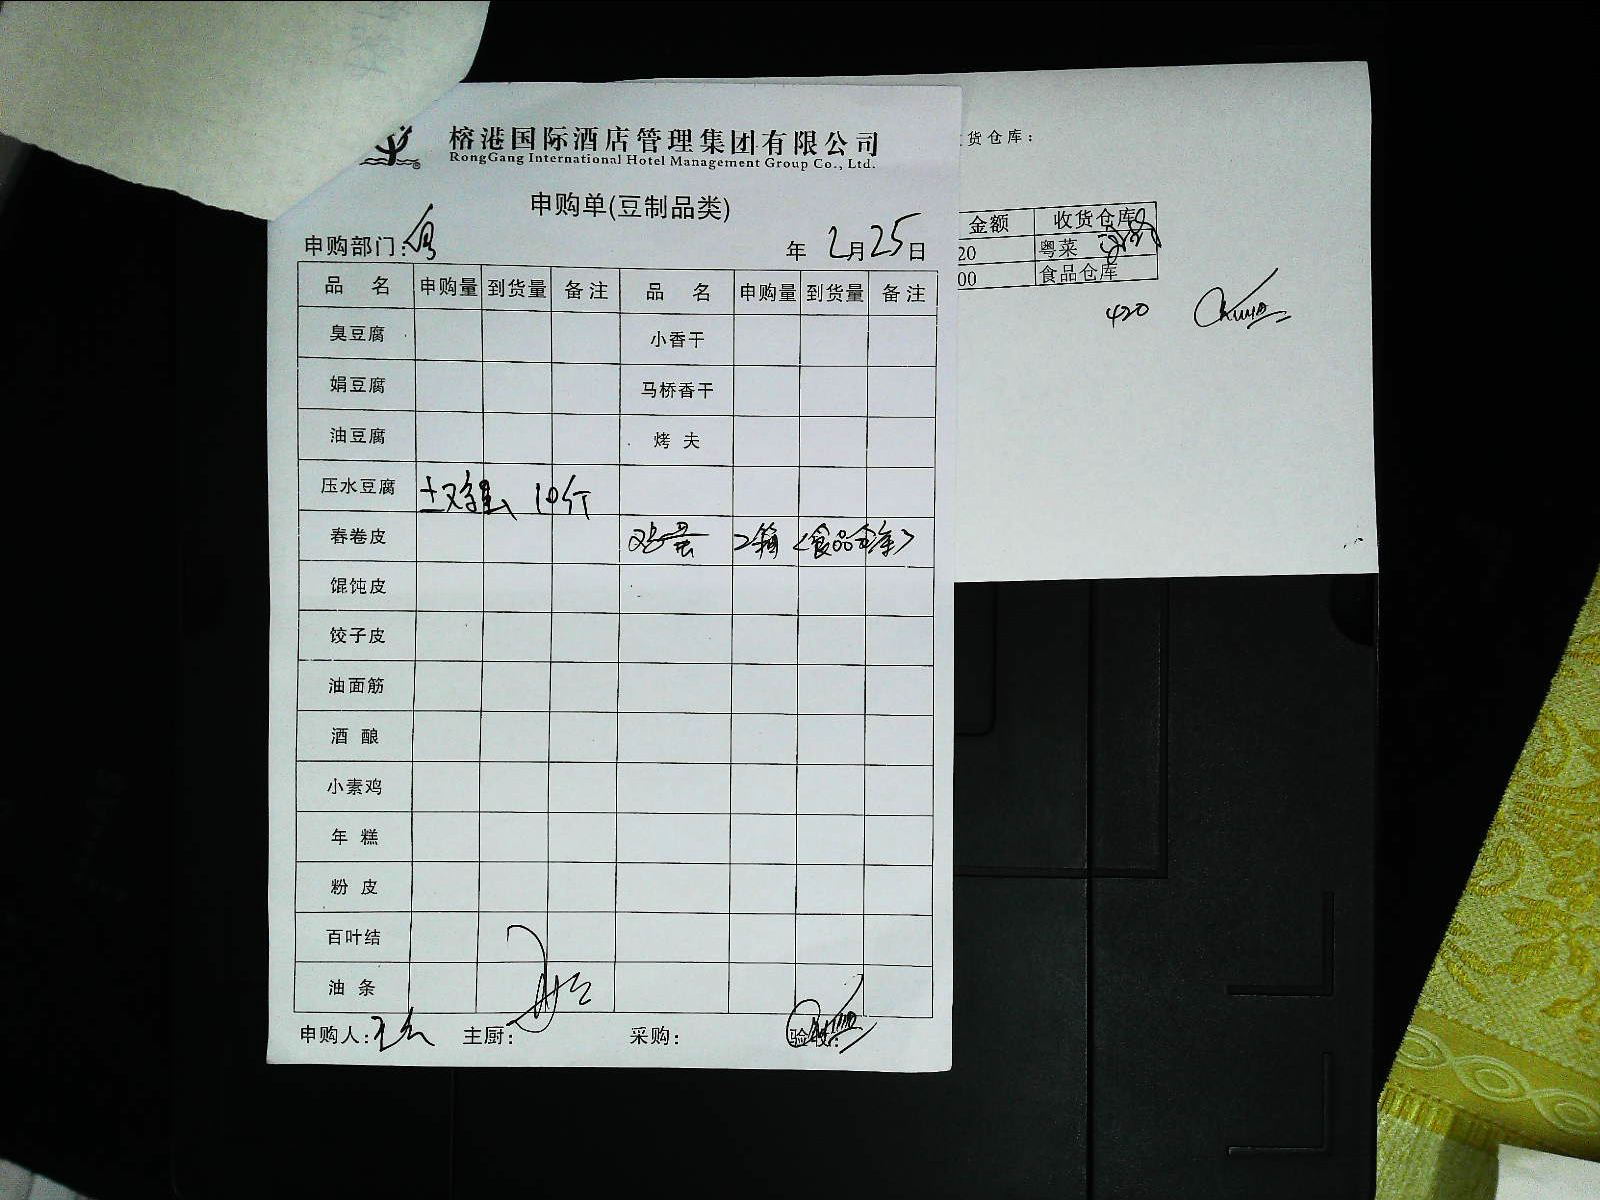 榕港国际酒店管理集团有限公司
RongGang International Hotel Management Group Co., Ltd.
申购单(豆制品类)
申购部门:
年 2月25日
品 名 申购量 到货量 备注 品 名 申购量 到货量 备注
臭豆腐 小香干
娟豆腐 马桥香干
油豆腐 烤 夫
压水豆腐 土鸡蛋 10斤
春卷皮 鸡蛋 2箱 <食品仓库>
馄饨皮
饺子皮
油面筋
酒 酿
小素鸡
年 糕
粉 皮
百叶结
油 条
申购人: 主厨: 采购: 验收:
货仓库:
金额 收货仓库
20 粤菜
00 食品仓库
420